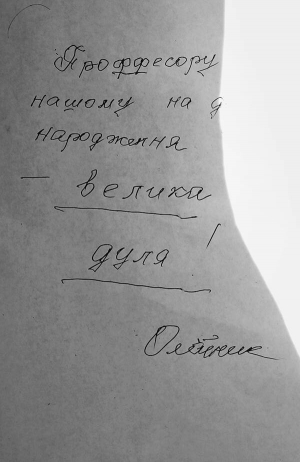 Проффесору
нашому на д
народження
— велика
дуля!
Олійник